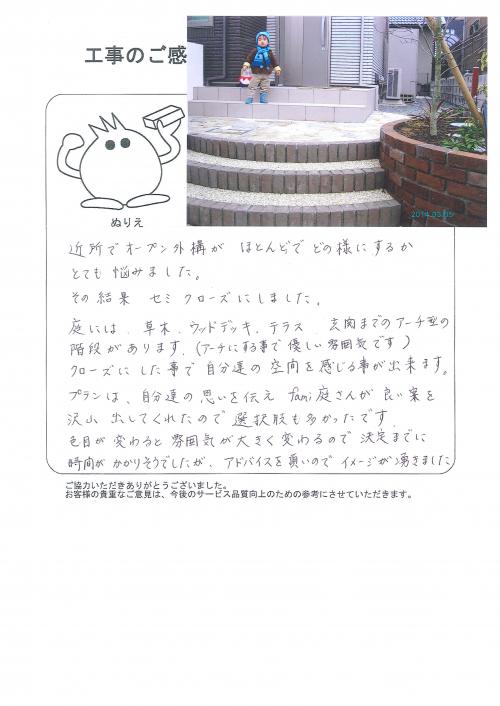 工事のご感
2014.03.05
ぬりえ
近所でオープン外構が ほとんどで どの様にするか
とても 悩みました。
その 結果 セミ クローズに しました。
庭には、草木、ウッドデッキ、テラス 玄関までのアーチ型の
階段が あります。(アーチにする事で 優しい 雰囲気です)
クローズに した事で 自分達の 空間を 感じる事が 出来ます。
プランは、自分達の 思いを 伝え fami庭さんが 良い案を
沢山 出してくれたので 選択肢も多かったです。
色目が 変わると 雰囲気が 大きく変わるので 決定までに
時間が かかりそうでしたが、アドバイスを 頂いので イメージが 湧きました
ご協力いただきありがとうございました。
お客様の貴重なご意見は、今後のサービス品質向上のための参考にさせていただきます。